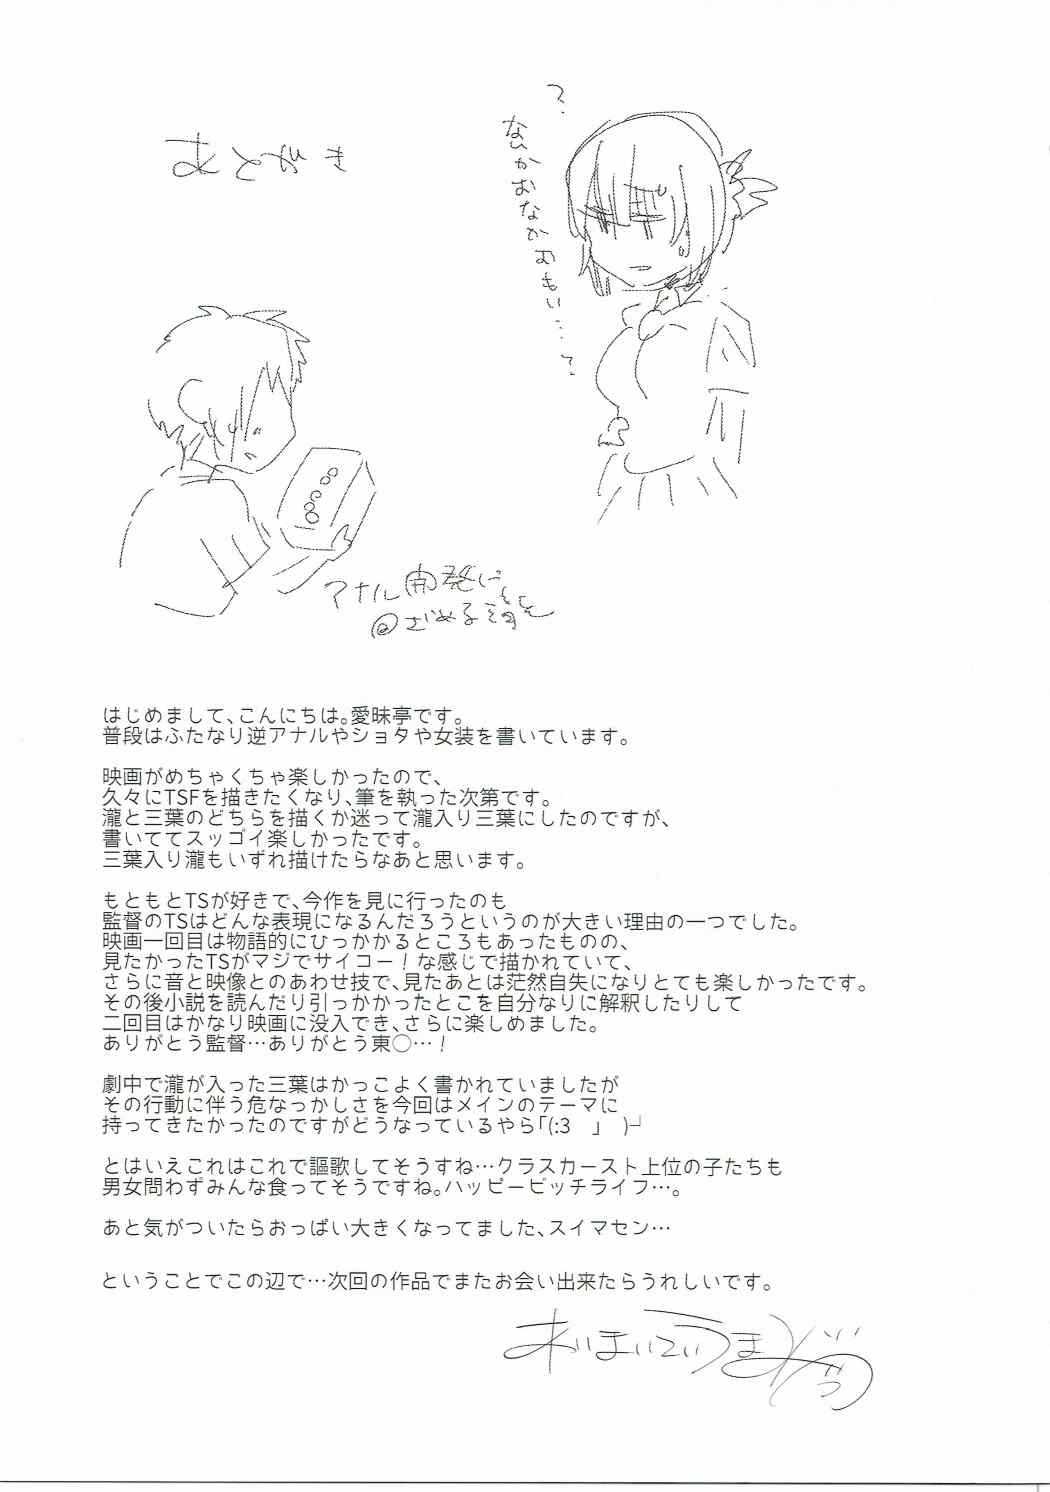 あとがき
?
なんかおなかおもい…?
アナル開発に
はじめまして、こんにちは。愛昧亭です。
普段はふたなり逆アナルやショタや女装を書いています。
映画がめちゃくちゃ楽しかったので、
久々にTSFを描きたくなり、筆を執った次第です。
瀧と三葉のどちらを描くか迷って瀧入り三葉にしたのですが、
書いててスッゴイ楽しかったです。
三葉入り瀧もいずれ描けたらなあと思います。
もともとTSが好きで、今作を見に行ったのも
監督のTSはどんな表現になるんだろうというのが大きい理由の一つでした。
映画一回目は物語的にひっかかるところもあったものの、
見たかったTSがマジでサイコー!な感じで描かれていて、
さらに音と映像とのあわせ技で、見たあとは茫然自失になりとても楽しかったです。
その後小説を読んだり引っかかったとこを自分なりに解釈したりして
二回目はかなり映画に没入でき、さらに楽しめました。
ありがとう監督…ありがとう東○…!
劇中で瀧が入った三葉はかっこよく書かれていましたが
その行動に伴う危なっかしさを今回はメインのテーマに
持ってきたかったのですがどうなっているやら「(:3 」 )┘
とはいえこれはこれで謳歌してそうすね…クラスカースト上位の子たちも
男女問わずみんな食ってそうですね。ハッピービッチライフ…。
あと気がついたらおっぱい大きくなってました、スイマセン…
ということでこの辺で…次回の作品でまたお会い出来たらうれしいです。
あいまいていうまみ